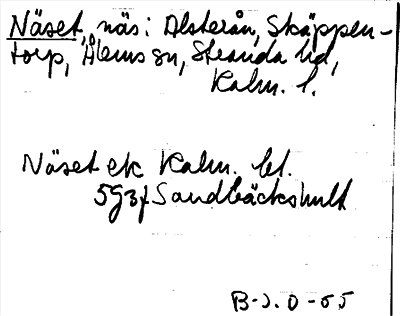 Näset, näs: Alsterån, Skäppen-
torp, Ålems sn, Stranda hd,
Kalm. l.
Näset ek Kalm. bl.
5G3f Sandbäckshult
B-J. O-55